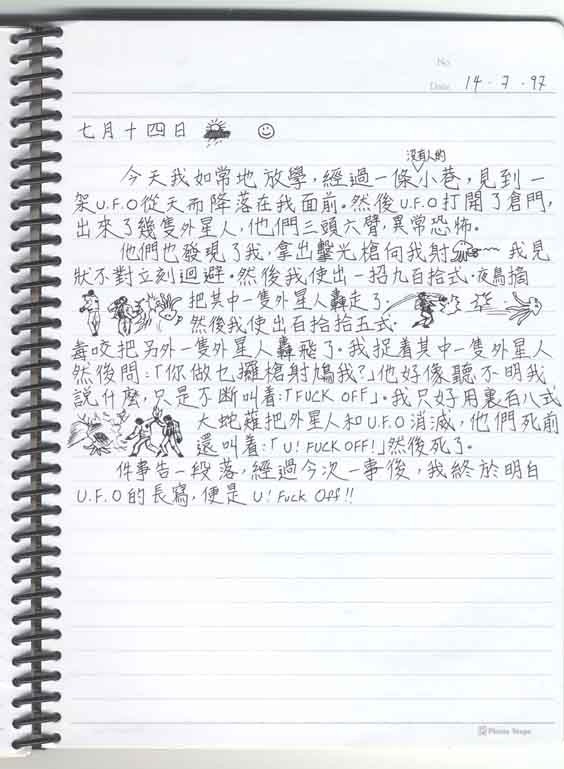 No
Date 14.7.97
七月十四日
沒有人的
今天我如常地放學,經過一條小巷,見到一
架U.F.O從天而降落在我面前。然後U.F.O打開了倉門,
出來了幾隻外星人,他們三頭六臂,異常恐怖。
他們也發現了我,拿出擊光槍向我射 我見
狀不對立刻迴避。然後我使出一招九百拾式.夜鳥摘
把其中一隻外星人轟走了.
然後我使出百拾拾五式.
毒咬把另外一隻外星人轟飛了。我捉着其中一隻外星人
然後問:「你做乜攞槍射鳩我?」他好像聽不明我
說什麼,只是不斷叫着:「FUCK OFF」。我只好用裏百八式
大蛇薙把外星人和U.F.O消滅,他們死前
還叫着:「U! FUCK OFF!」然後死了。
件事告一段落,經過今次一事後,我終於明白
U.F.O的長寫,便是U! Fuck Off!!